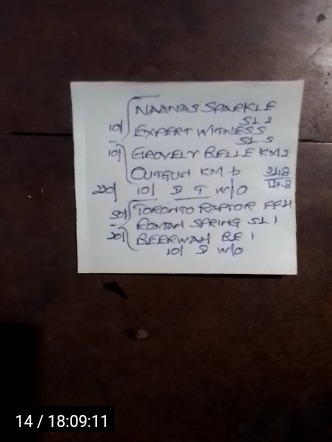 NAANAS SPARKLE
SL 2
10/ EXPERT WITNESS
SL 5
10/ GROVELY BELLE KM2
OUTGUN KM 6
10/ D T W/O
TORONTO RAPTOR FFH
ROMAN SPRING SL 1
BEERWAH BE 1
10/ D W/O
14 / 18:09:11